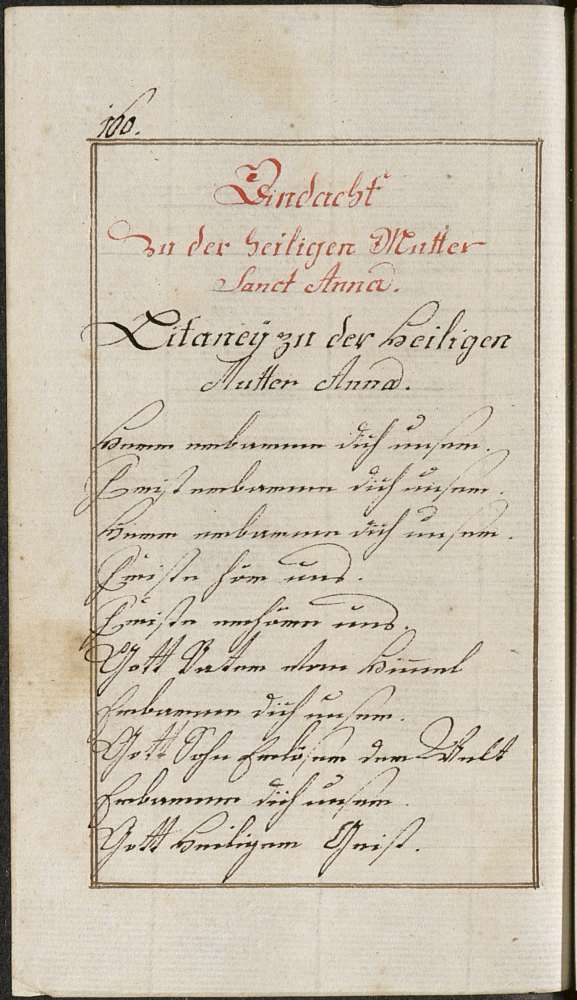 160.
Andacht
Zu der heiligen Mutter
Sanct Anna.
Litaneÿ zu der Heiligen
Mutter Anna.
Herr erbarme dich unser.
Christ erbarme dich unser.
Herr erbarme dich unser.
Christe höre uns.
Christe erhöre uns.
Gott Vater vom Himmel
Erbarme dich unser.
Gott Sohn Erlöser der Welt
Erbarme dich unser.
Gott Heiliger Geist.